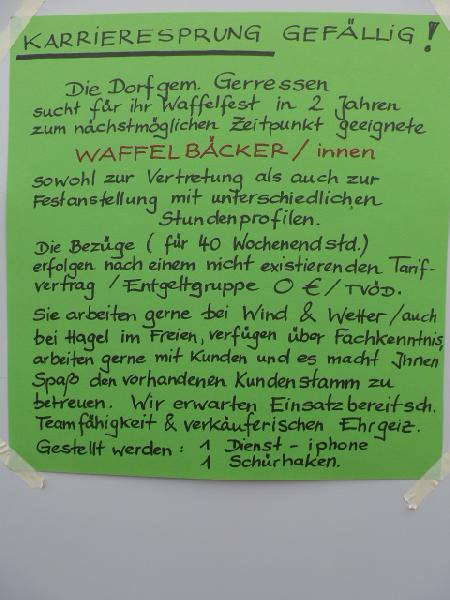 KARRIERESPRUNG GEFÄLLIG!
Die Dorfgem. Gerressen
sucht für ihr Waffelfest in 2 Jahren
zum nächstmöglichen Zeitpunkt geeignete
WAFFELBÄCKER/innen
sowohl zur Vertretung als auch zur
Festanstellung mit unterschiedlichen
Stundenprofilen.
Die Bezüge (für 40 Wochenendstd.)
erfolgen nach einem nicht existierenden Tarif-
vertrag / Entgeltgruppe 0 € / TVÖD.
Sie arbeiten gerne bei Wind & Wetter / auch
bei Hagel im Freien, verfügen über Fachkenntnis,
arbeiten gerne mit Kunden und es macht Ihnen
Spaß den vorhandenen Kundenstamm zu
betreuen. Wir erwarten Einsatzbereitsch.
Teamfähigkeit & verkäuferischen Ehrgeiz.
Gestellt werden: 1 Dienst-iphone
1 Schürhaken.